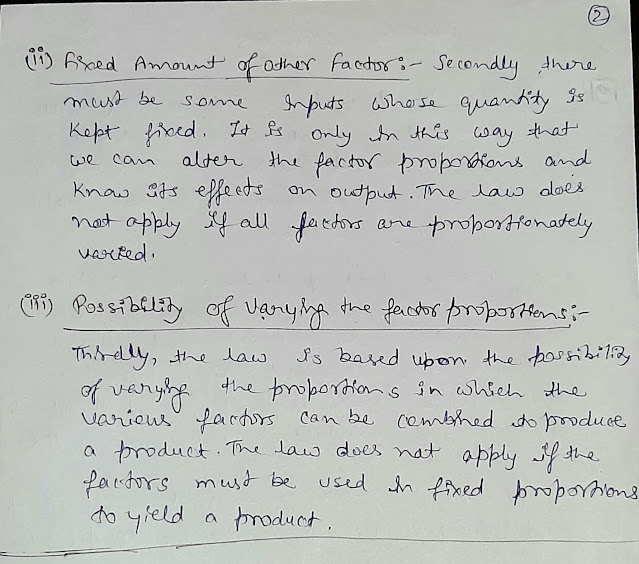 2
(ii) Fixed Amount of other factor:- Secondly, there
must be some inputs whose quantity is
kept fixed. It is only in this way that
we can alter the factor proportions and
know its effects on output. The law does
not apply if all factors are proportionately
varied.
(iii) Possibility of varying the factor proportions:-
Thirdly, the law is based upon the possibility
of varying the proportions in which the
various factors can be combined to produce
a product. The law does not apply if the
factors must be used in fixed proportions
to yield a product.